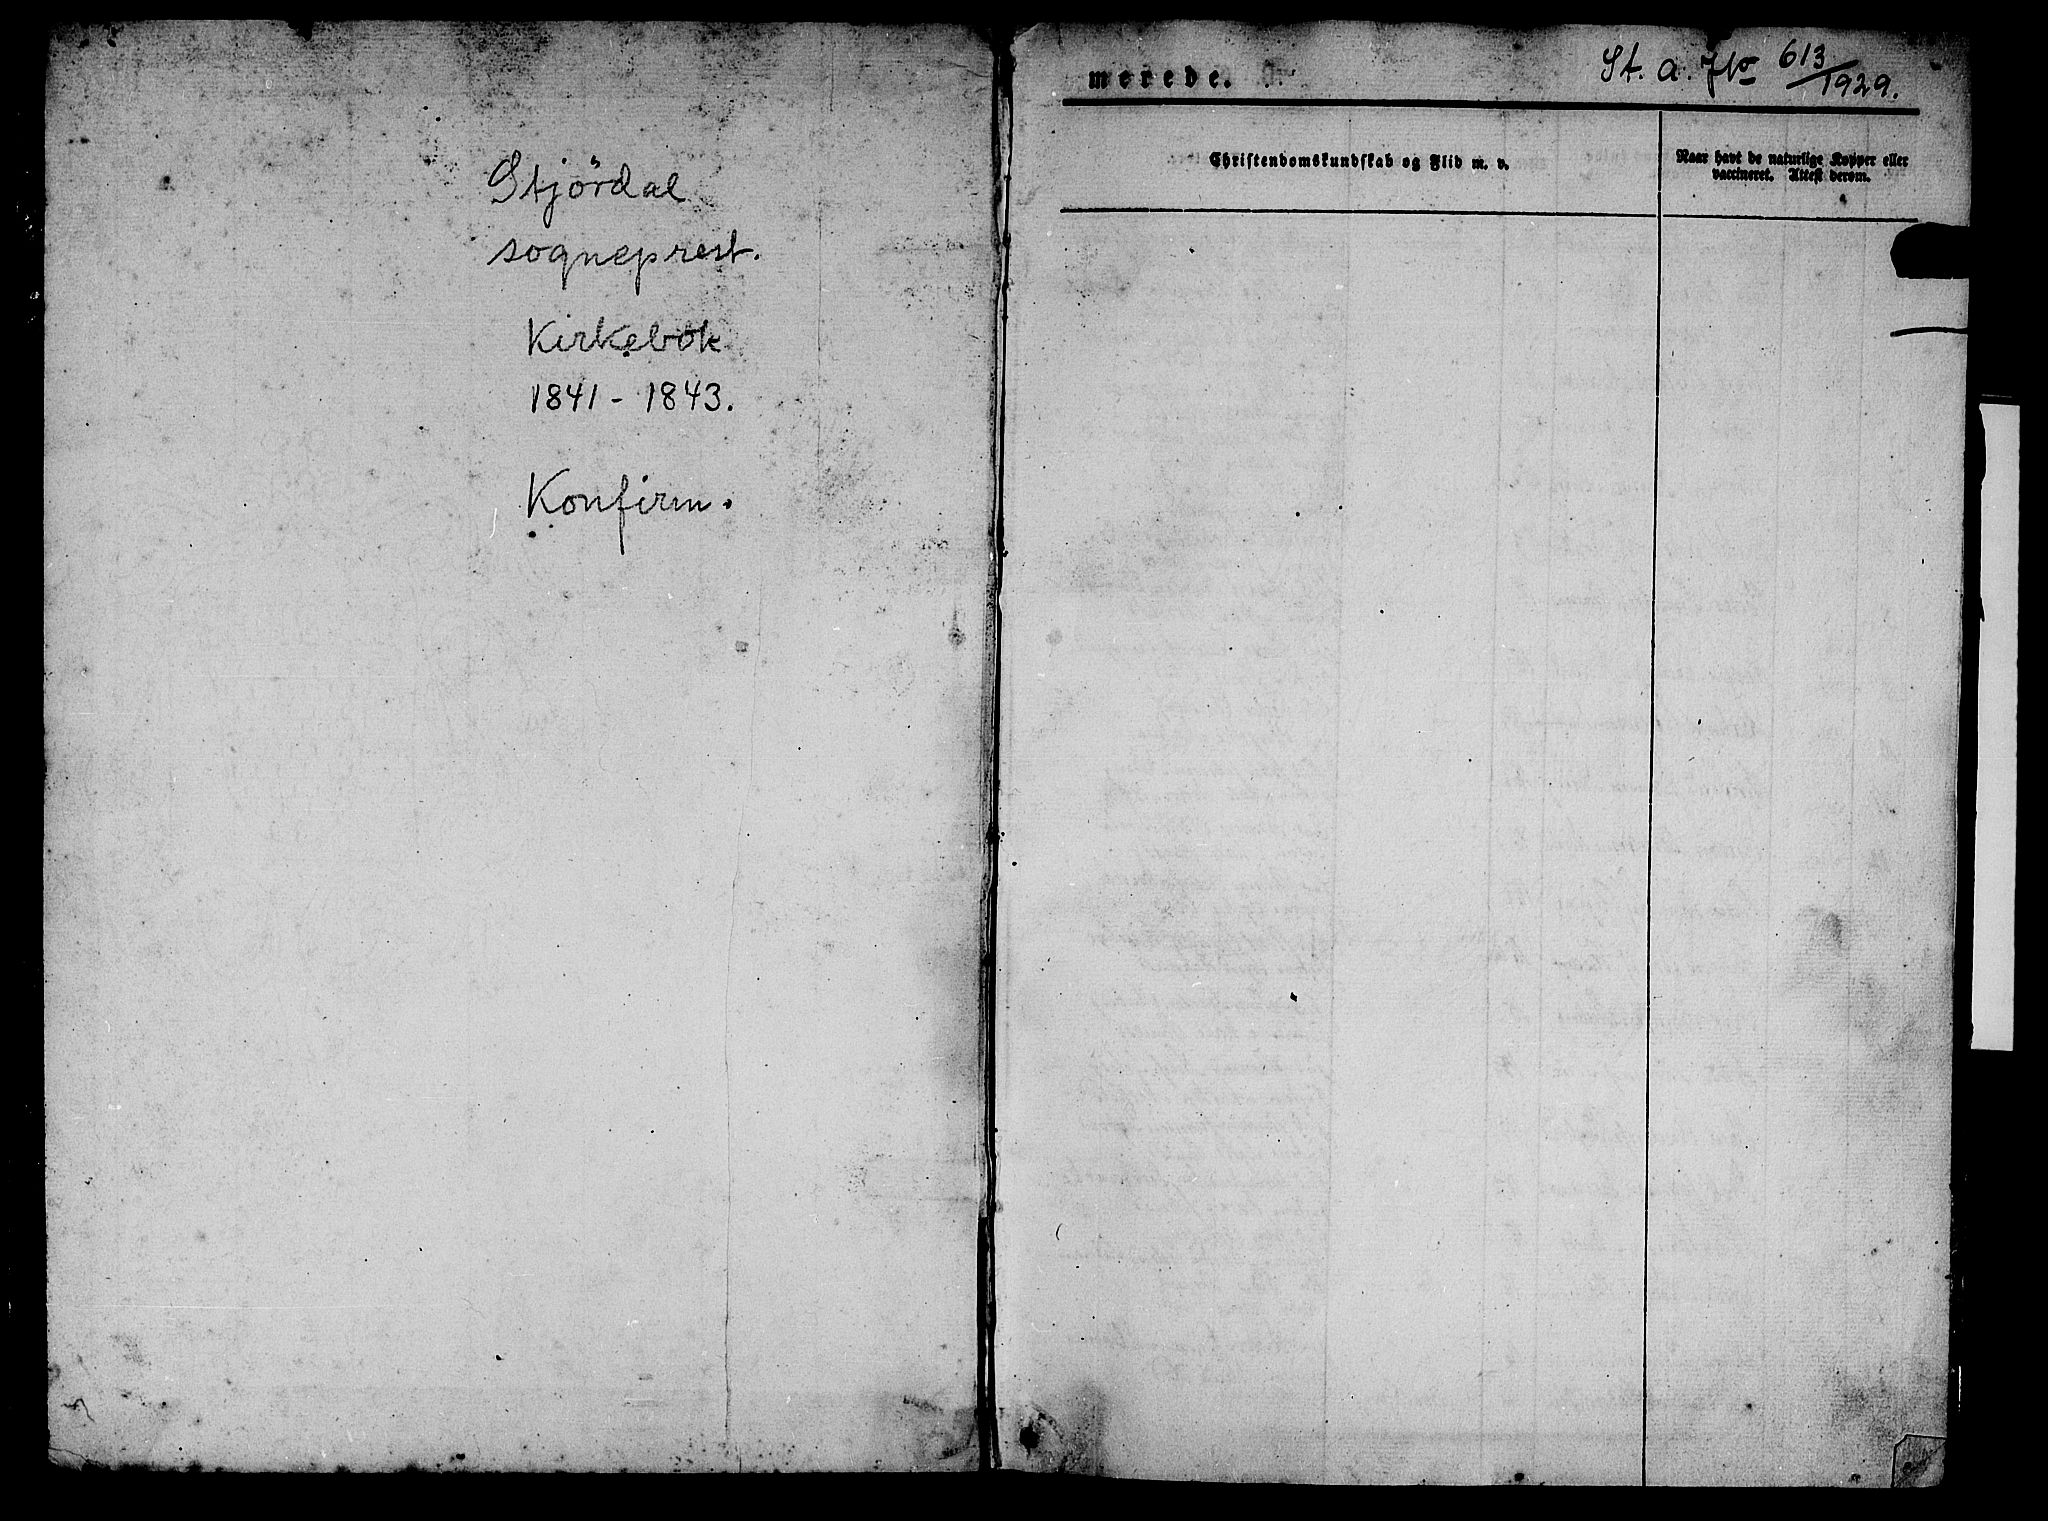 Stjördal
sogneprest.
Kirkebok
1841 - 1843.
Konfirm.
merede.
St. a. 613/1929.
Christendomskundskab og Flid m. v.
Naar havt de naturlige Kopper eller
vaccineret. Attest derom.